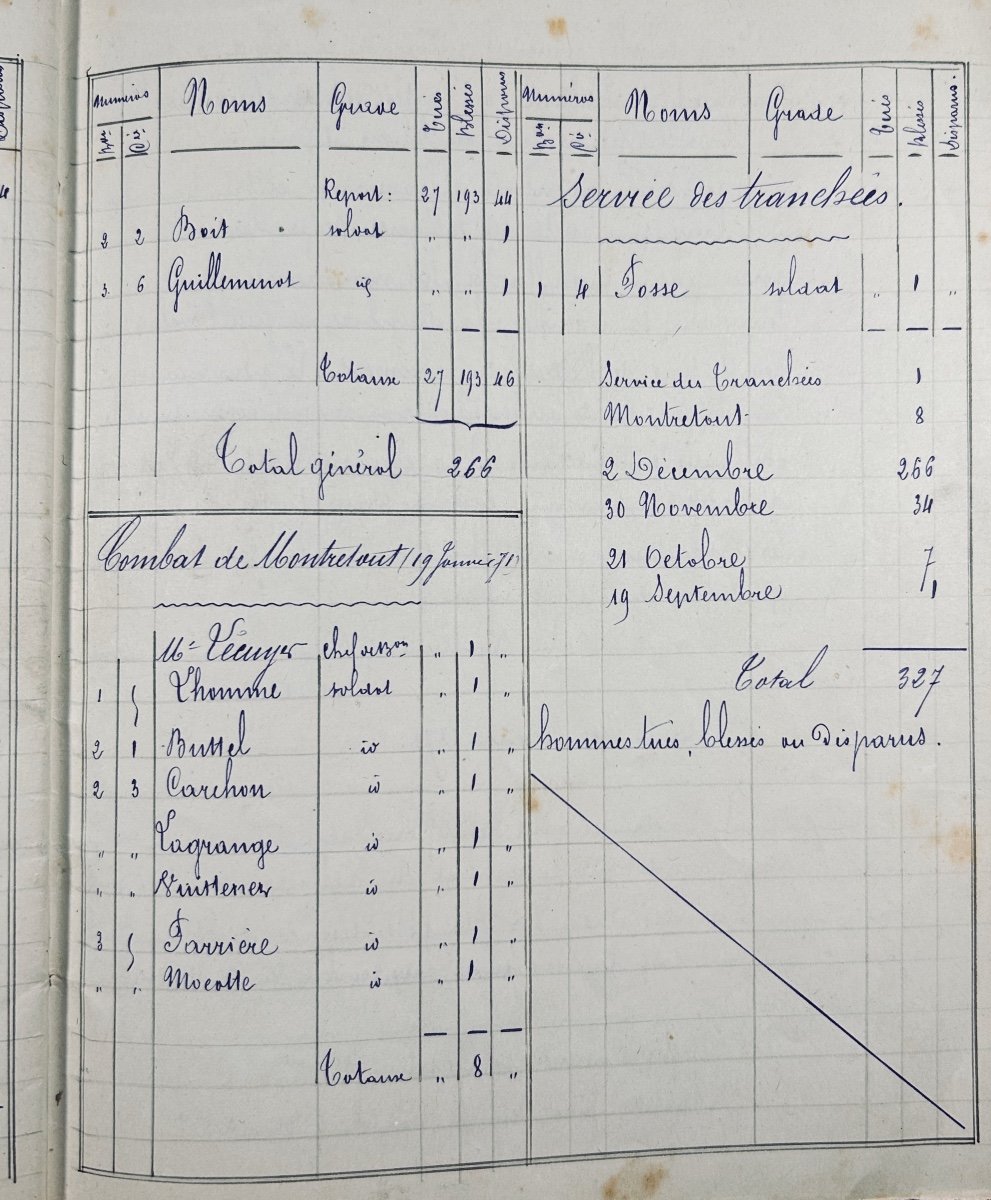 Numéros Noms Grade Tués Blessés Disparus
Bon Cie
Report: 27 193 44
2 2 Boit soldat " " 1
3 6 Guillemenot id " " 1
Totaux 27 193 46
Total général 266
Combat de Montretout (19 Janvier 71)
Mr Lécuyer chef de Bon " 1 "
1 5 Lhomme soldat " 1 "
2 1 Buttel id " 1 "
2 3 Carchon id " 1 "
" " Lagrange id " 1 "
" " id " 1 "
3 5 Farrière id " 1 "
" " Mocotte id " 1 "
Totaux " 8 "
Numéros Noms Grade Tués Blessés Disparus.
Bon Cie
Service des tranchées.
1 4 Fosse soldat " 1 "
Service des Tranchées 1
Montretout 8
2 Décembre 266
30 Novembre 34
21 Octobre 7
19 Septembre 11
Total 327
hommes tués, blessés ou Disparus.